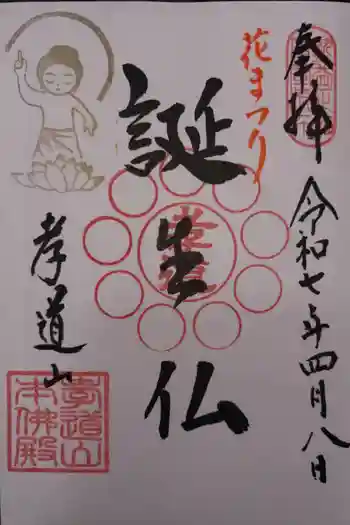 奉拝
令和七年四月八日
花まつり
誕生仏
孝道山
孝道山
本佛殿